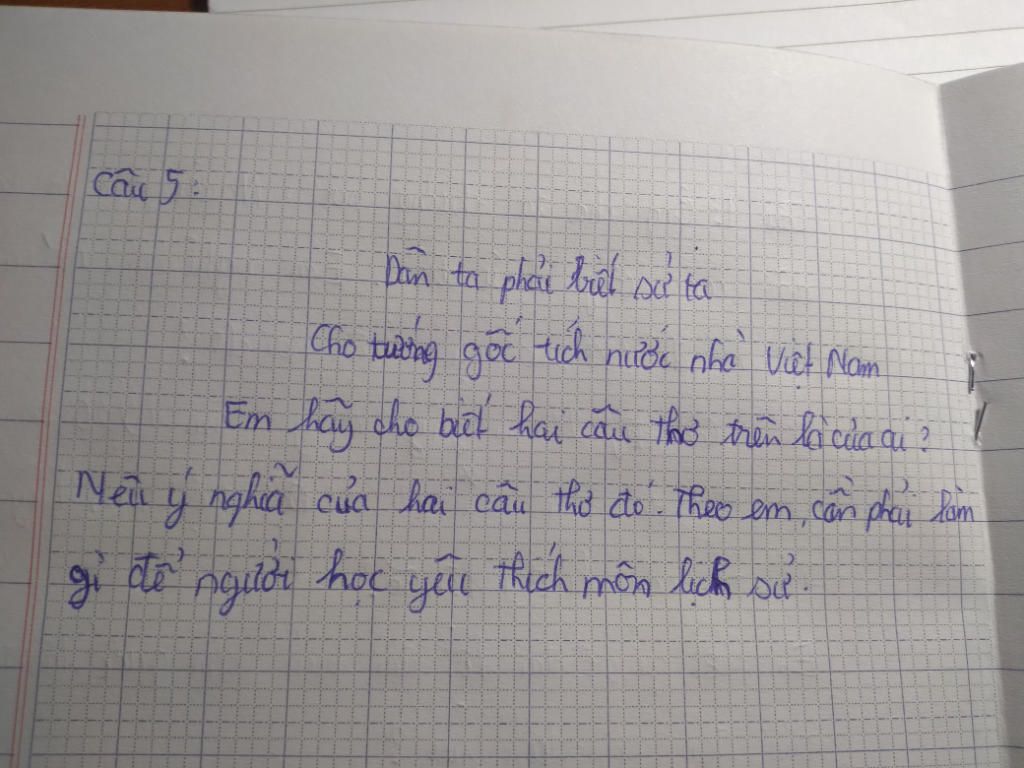 Câu 5:
Dân ta phải biết sử ta
Cho tường gốc tích nước nhà Việt Nam
Em hãy cho biết hai câu thơ trên là của ai?
Nêu ý nghĩa của hai câu thơ đó. Theo em, cần phải làm
gì để người học yêu thích môn lịch sử.